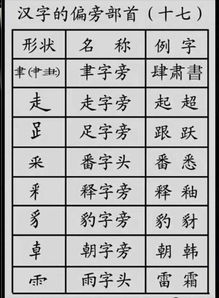 汉字的偏旁部首（十七）
形状 名称 例字
聿（肀⺻） 聿字旁 肆肃書
走 走字旁 起超
𧾷 足字旁 跟跃
釆 番字头 番悉
釆 释字旁 释釉
豸 豹字旁 豹豺
龺 朝字旁 朝韩
⻗ 雨字头 雷霜